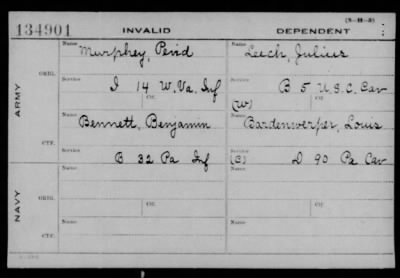 134901 INVALID DEPENDENT (3-H-3)
Name Murphey, Penid Name Leech, Julius
ARMY
ORIG.
Service I 14 W. Va. Inf Service B 5 U.S.C. Cav
Of. (W) Of.
Name Bennett, Benjamin Name Bardenwerper, Louis
CTF.
Service B 32 Pa Inf Service (C) D 90 Pa Cav
NAVY
ORIG.
Name Name
Of. Of.
CTF.
Name Name